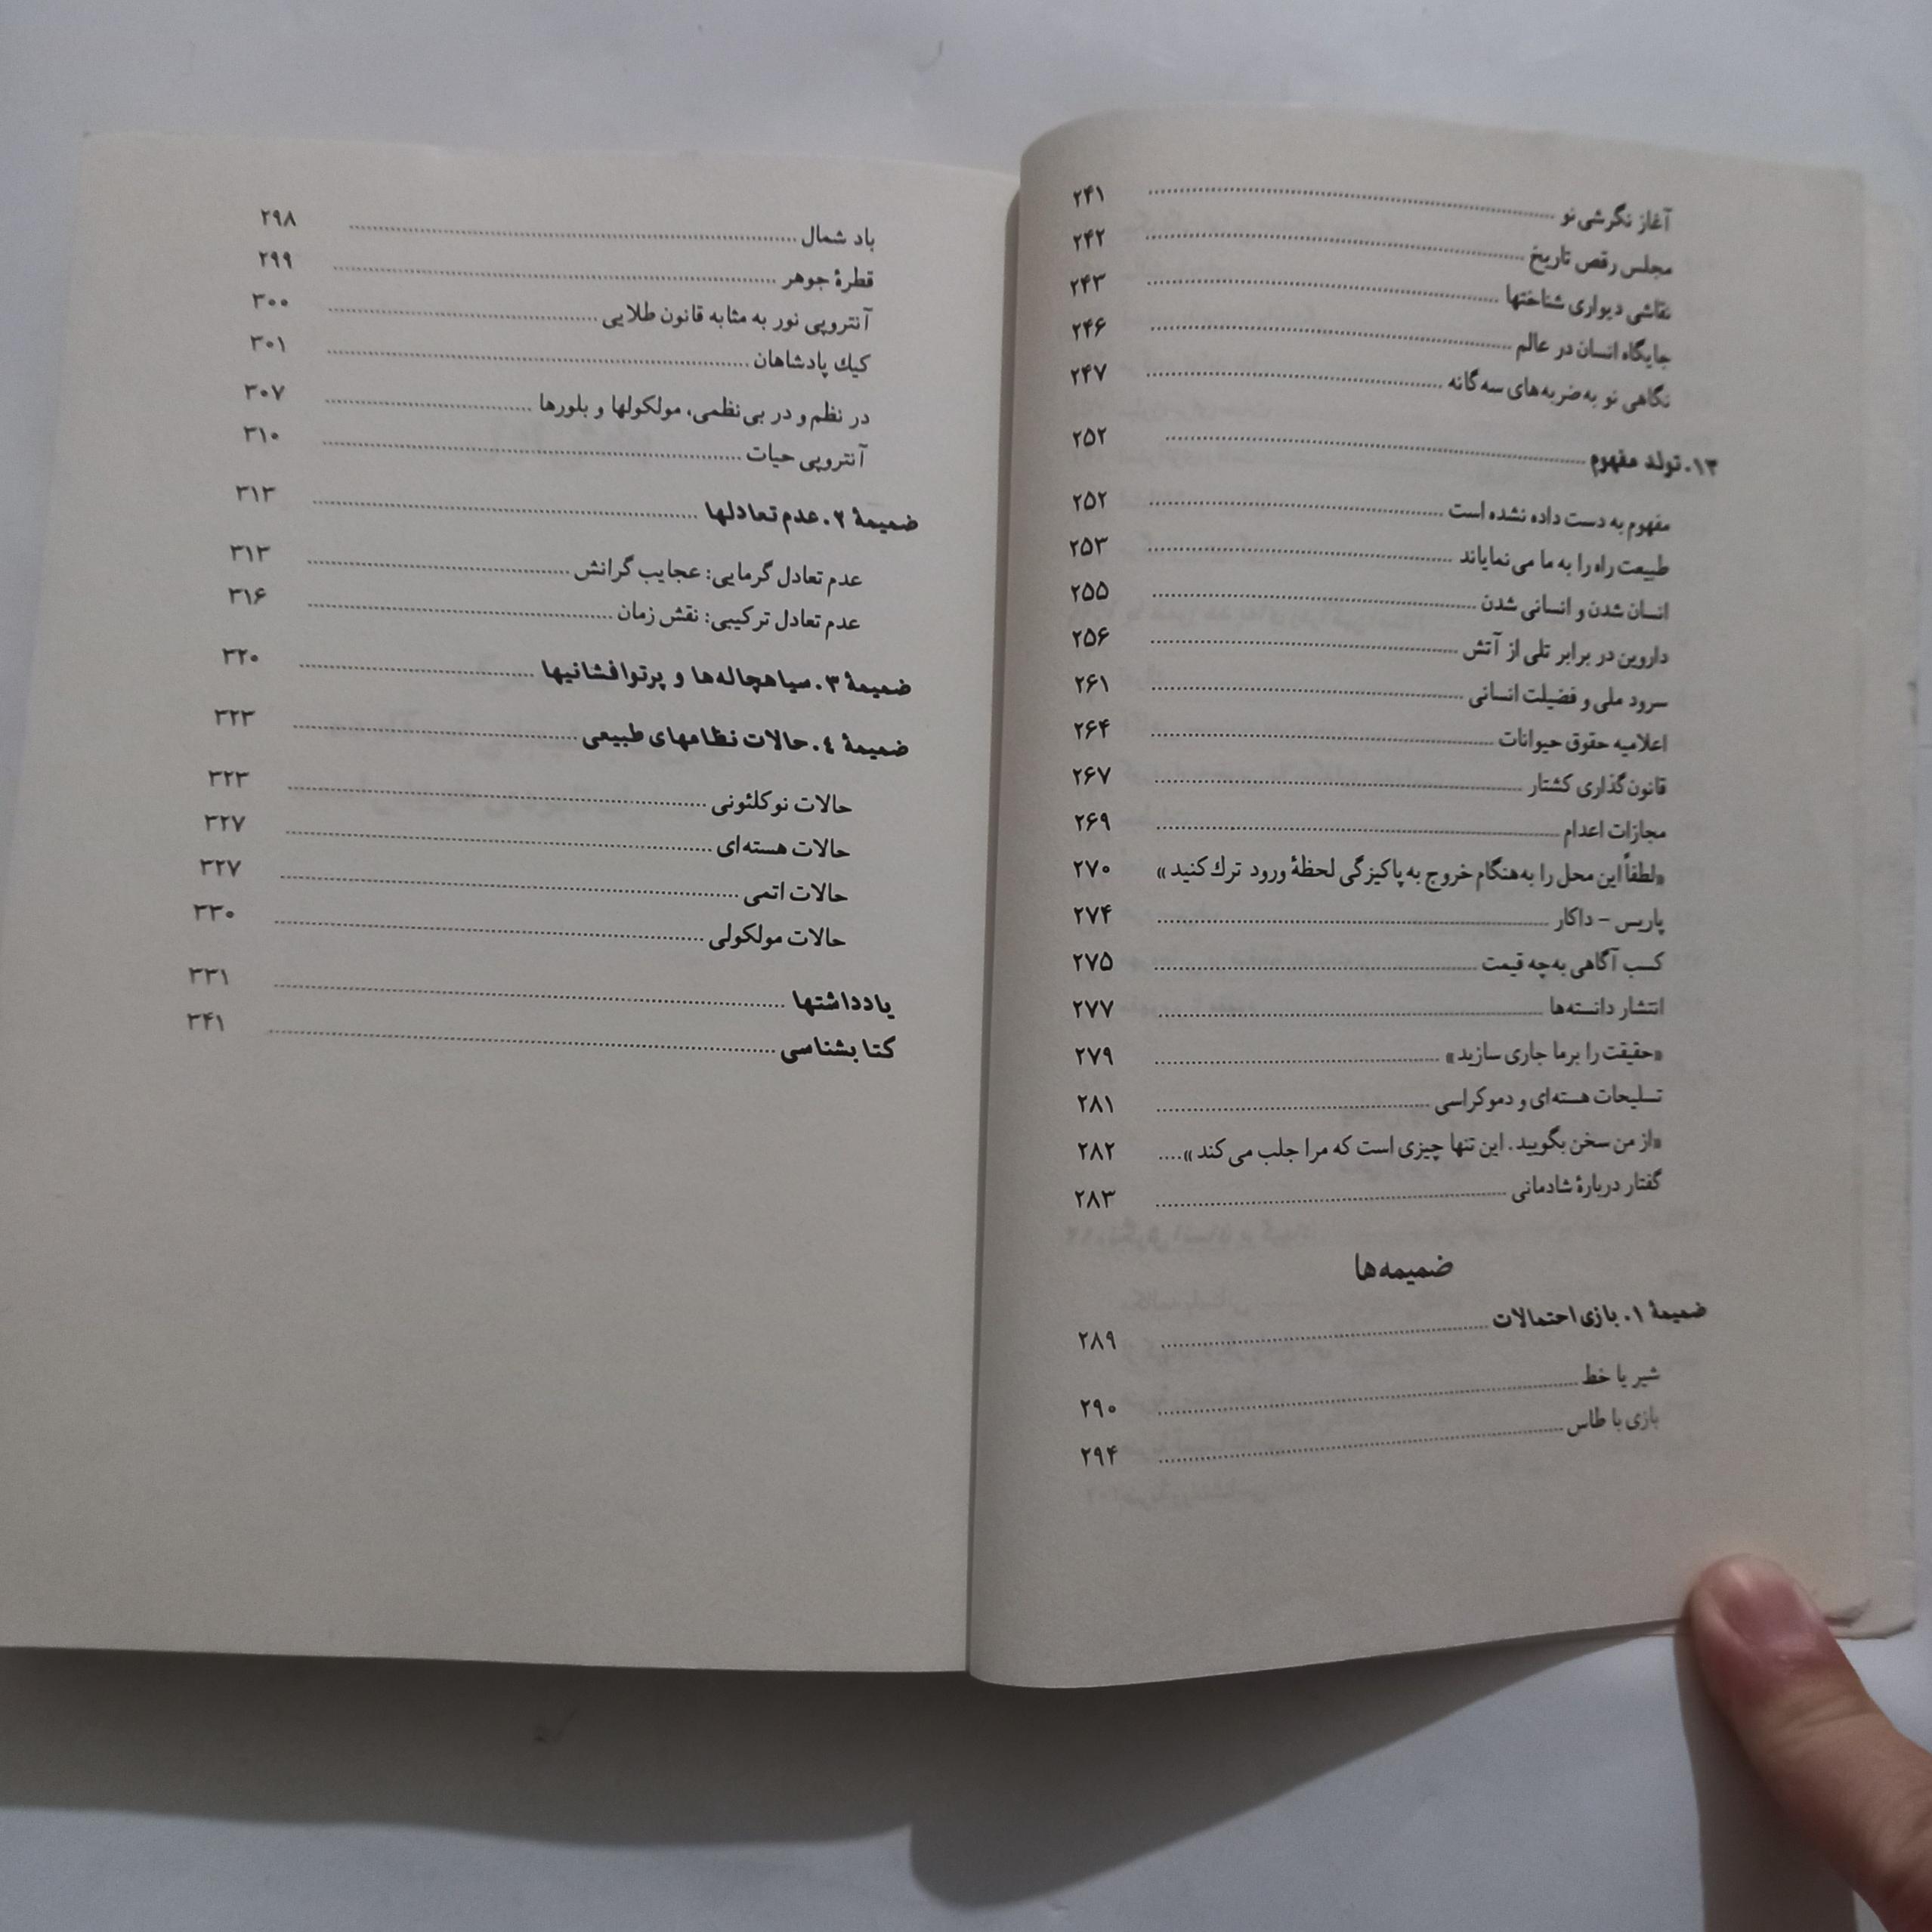 آغاز نگرشی نو ... ۲۴۱
مجلس رقص تاریخ ... ۲۴۲
نقاشی دیواری شناختها ... ۲۴۳
جایگاه انسان در عالم ... ۲۴۶
نگاهی نو به ضربه‌های سه گانه ... ۲۴۷
۱۳. تولد مفهوم ... ۲۵۲
مفهوم به دست داده نشده است ... ۲۵۲
طبیعت راه را به ما می‌نمایاند ... ۲۵۳
انسان شدن و انسانی شدن ... ۲۵۵
داروین در برابر تلی از آتش ... ۲۵۶
سرود ملی و فضیلت انسانی ... ۲۶۱
اعلامیه حقوق حیوانات ... ۲۶۴
قانون‌گذاری کشتار ... ۲۶۷
مجازات اعدام ... ۲۶۹
«لطفاً این محل را به‌هنگام خروج به پاکیزگی لحظهٔ ورود ترك کنید» ۲۷۰
پاریس – داکار ... ۲۷۴
کسب آگاهی به‌چه قیمت ... ۲۷۵
انتشار دانسته‌ها ... ۲۷۷
«حقیقت را برما جاری سازید» ... ۲۷۹
تسلیحات هسته‌ای و دموکراسی ... ۲۸۱
«از من سخن بگویید. این تنها چیزی است که مرا جلب می‌کند».... ۲۸۲
گفتار دربارهٔ شادمانی ... ۲۸۳
ضمیمه‌ها
ضمیمهٔ ۱. بازی احتمالات ... ۲۸۹
شیر یا خط ... ۲۹۰
بازی با طاس ... ۲۹۴
باد شمال ... ۲۹۸
قطرهٔ جوهر ... ۲۹۹
آنتروپی نور به مثابه قانون طلایی ... ۳۰۰
کیك پادشاهان ... ۳۰۱
در نظم و در بی‌نظمی، مولکولها و بلورها ... ۳۰۷
آنتروپی حیات ... ۳۱۰
ضمیمهٔ ۲. عدم تعادلها ... ۳۱۳
عدم تعادل گرمایی: عجایب گرانش ... ۳۱۳
عدم تعادل ترکیبی: نقش زمان ... ۳۱۶
ضمیمهٔ ۳. سیاهچاله‌ها و پرتوافشانیها ... ۳۲۰
ضمیمهٔ ٤. حالات نظامهای طبیعی ... ۳۲۳
حالات نوکلئونی ... ۳۲۳
حالات هسته‌ای ... ۳۲۷
حالات اتمی ... ۳۲۷
حالات مولکولی ... ۳۳۰
یادداشتها ... ۳۳۱
کتابشناسی ... ۳۴۱